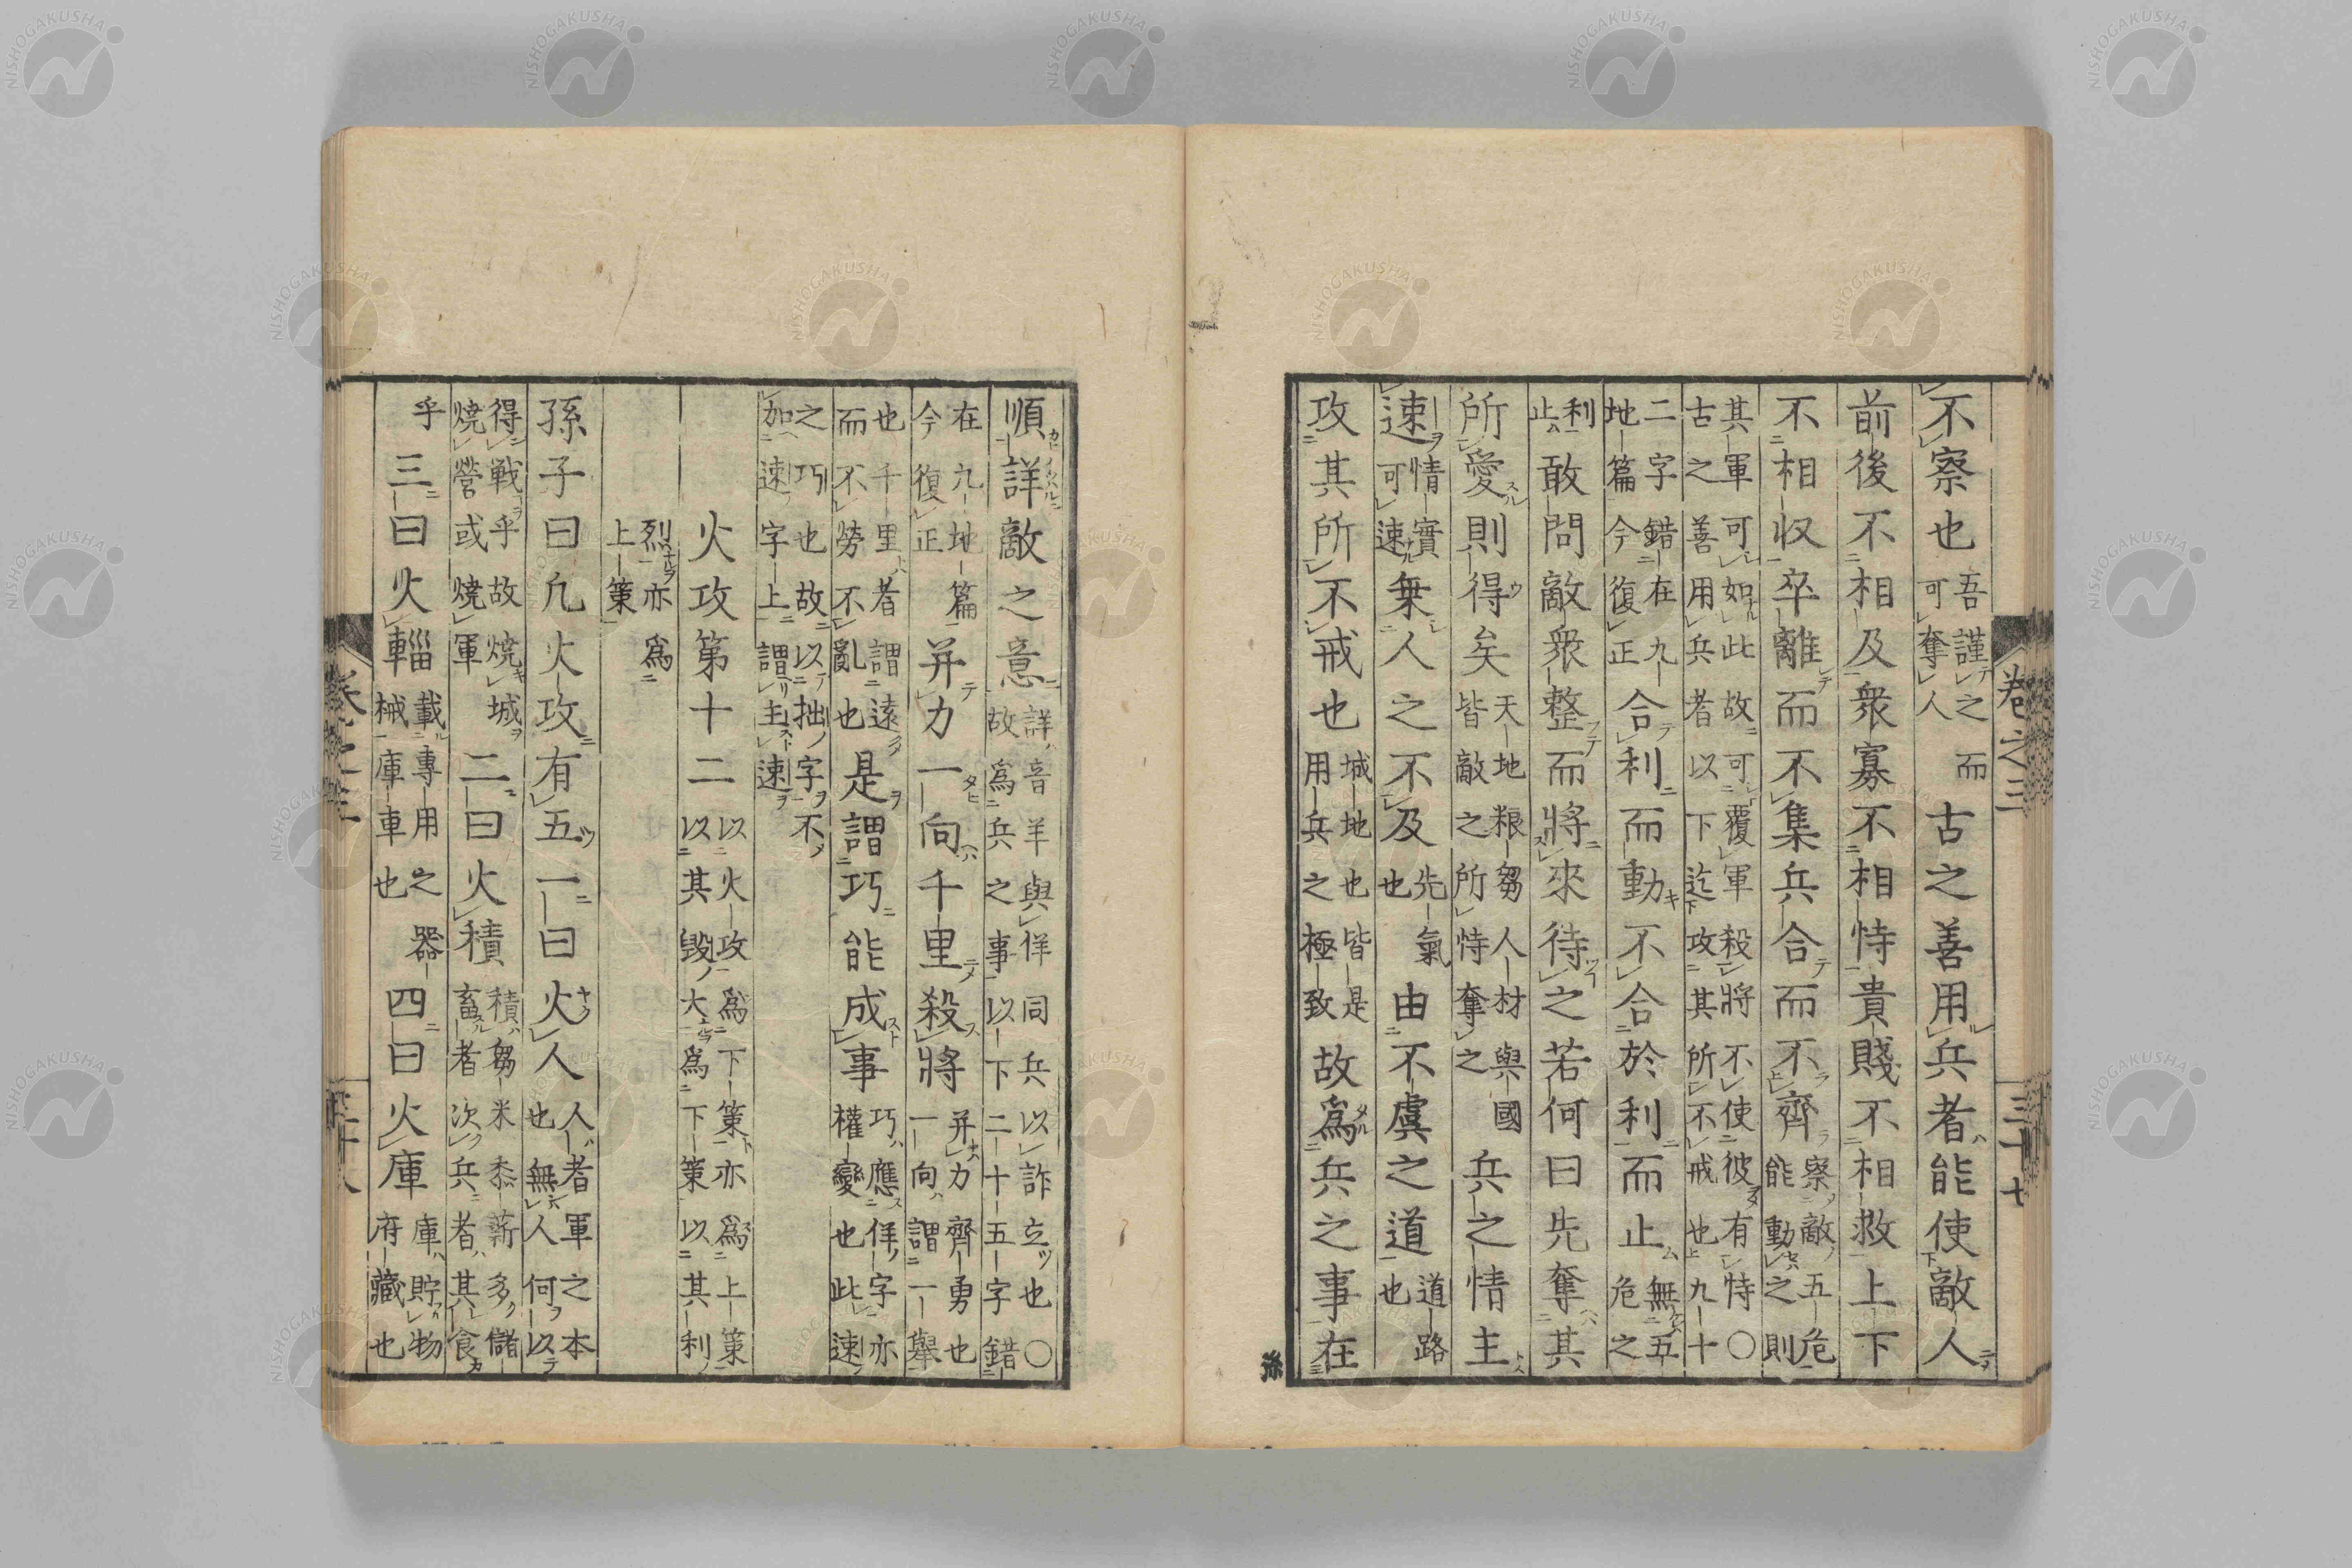 巻之三 三十七
不察也吾謹之而可奪人古之善用兵者能使敵人
前後不相及衆寡不相恃貴賤不相救上下
不相収卒離而不集兵合而不齊察敵五危能動之則
其軍可如此故可覆軍殺將不使彼有恃〇古之善用兵者以下迄攻其所不戒也九十
二字錯在九地篇今復正合利而動不合於利而止無五危之
利止敢問敵衆整而將來待之若何曰先奪其
所愛則得矣天地粮芻人材與國皆敵之所恃奪之兵之情主
速情實可速乗人之不及先氣也由不虞之道道路也
攻其所不戒也城地也皆是用兵之極致故爲兵之事在
順詳敵之意詳音羊與佯同兵以詐立也〇故爲兵之事以下二十五字錯
在九地篇今復正并力一向千里殺將并力齊勇也一向謂一舉
也千里者謂遠而不勞不亂也是謂巧能成事巧應佯字亦權變也此速
之巧也故以拙字不加速字上謂主速
火攻第十二以火攻爲下策亦爲上策以其毀大爲下策以其利
烈亦爲上策
孫子曰凡火攻有五一曰火人人者軍之本也無人何以
得戰乎故燒城燒營或燒軍二曰火積積芻米黍薪多儲畜者次兵者其食
乎三曰火輜載專用之器械庫車也四曰火庫庫貯物府藏也